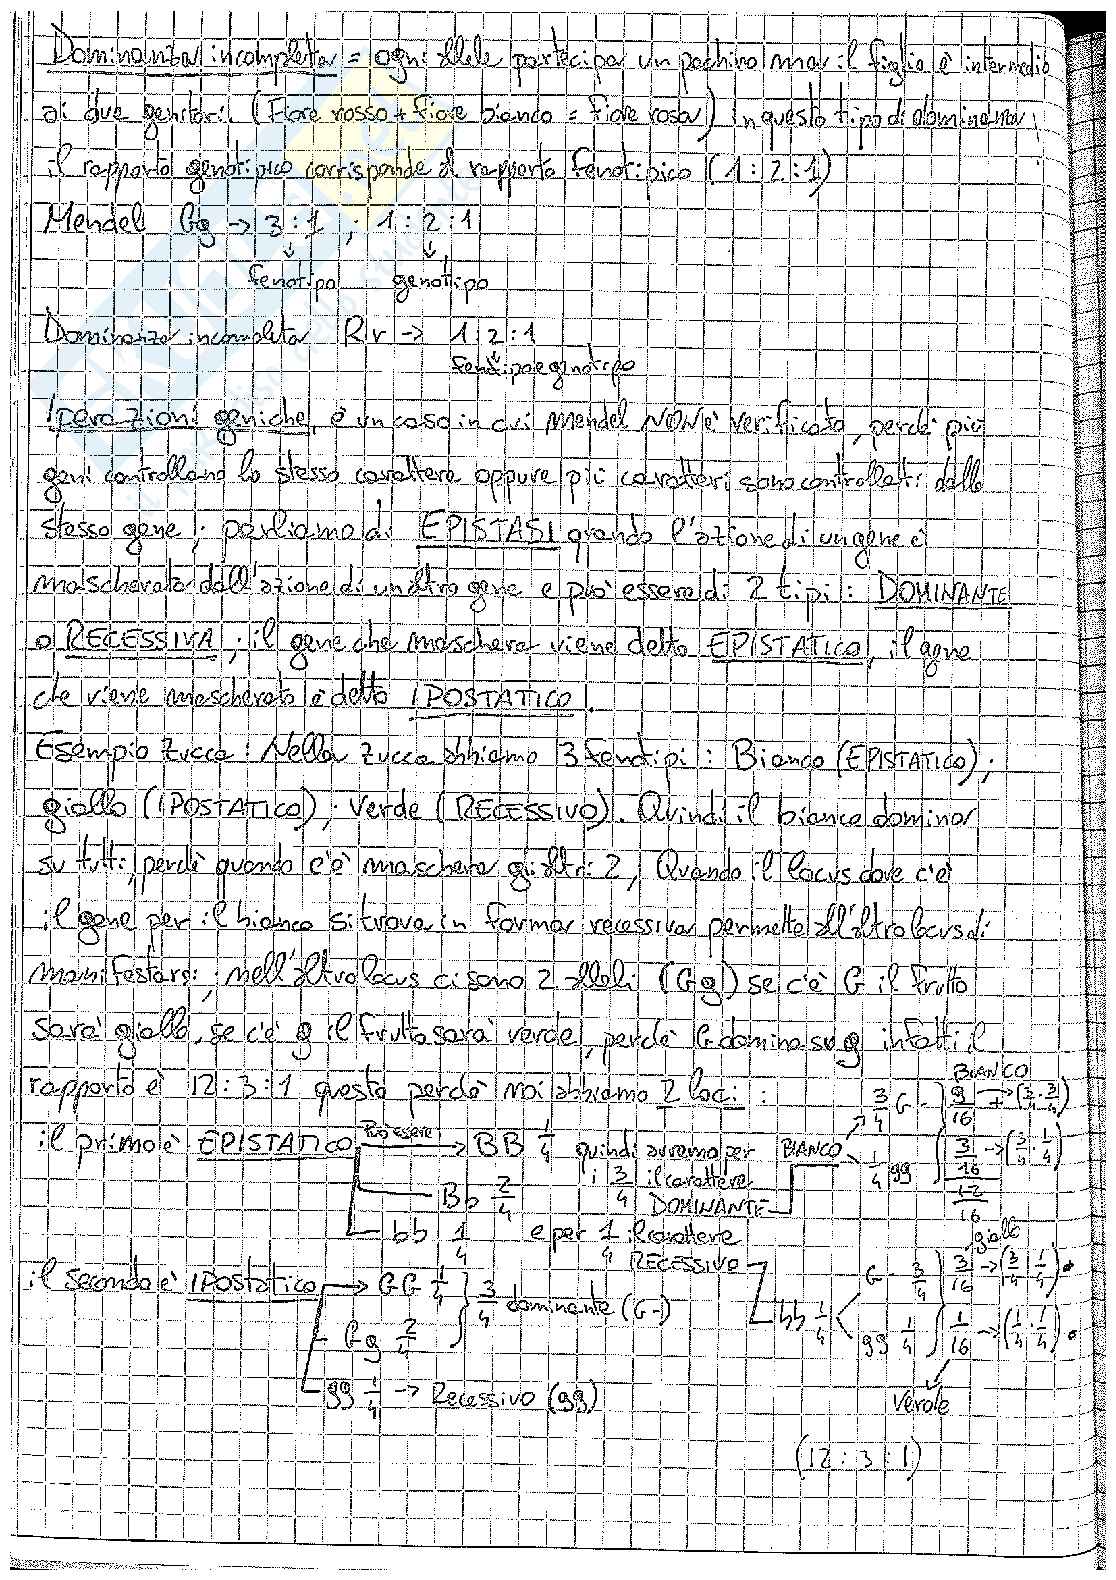 Dominanza incompleta = ogni allele partecipa un pochino ma il figlio è intermedio
ai due genitori. (Fiore rosso + fiore bianco = fiore rosa) in questo tipo di dominanza
il rapporto genotipico corrisponde al rapporto fenotipico (1:2:1)
Mendel Gg → 3:1 ; 1:2:1
fenotipo genotipo
Dominanza incompleta Rr → 1:2:1
fenotipo e genotipo
geniche, è un caso in cui Mendel NON è verificato, perché più
geni controllano lo stesso carattere oppure più caratteri sono controllati dallo
stesso gene; parliamo di EPISTASI quando l'azione di un gene è
mascherata dall'azione di un altro gene e può essere di 2 tipi: DOMINANTE
o RECESSIVA; il gene che maschera viene detto EPISTATICO, il gene
che viene mascherato è detto IPOSTATICO.
Esempio zucca: Nella zucca abbiamo 3 fenotipi: Bianco (EPISTATICO);
giallo (IPOSTATICO); verde (RECESSIVO). Quindi il bianco domina
su tutti, perché quando c'è maschera gli altri 2, Quando il locus dove c'è
il gene per il bianco si trova in forma recessiva permette all'altro locus di
manifestarsi; nell'altro locus ci sono 2 alleli (Gg) se c'è G il frutto
sarà giallo, se c'è g il frutto sarà verde, perché G domina su g infatti il
rapporto è 12:3:1 questo perché noi abbiamo 2 loci:
BIANCO
3/4 G- 9/16 + → (3/4 · 3/4)
il primo è EPISTATICO può essere → BB 1/4 quindi avremo per BIANCO 1/4 gg 3/16 → (3/4 · 1/4)
i 3/4 il carattere
Bb 2/4 DOMINANTE 12/16
bb 1/4 e per 1/4 il carattere
RECESSIVO
giallo
il secondo è IPOSTATICO → GG 1/4 3/4 dominante (G-) G- 3/4 3/16 → (3/4 · 1/4)
Gg 2/4 bb 1/4 gg 1/4 1/16 → (1/4 · 1/4)
gg 1/4 → Recessivo (gg) Verde
(12:3:1)